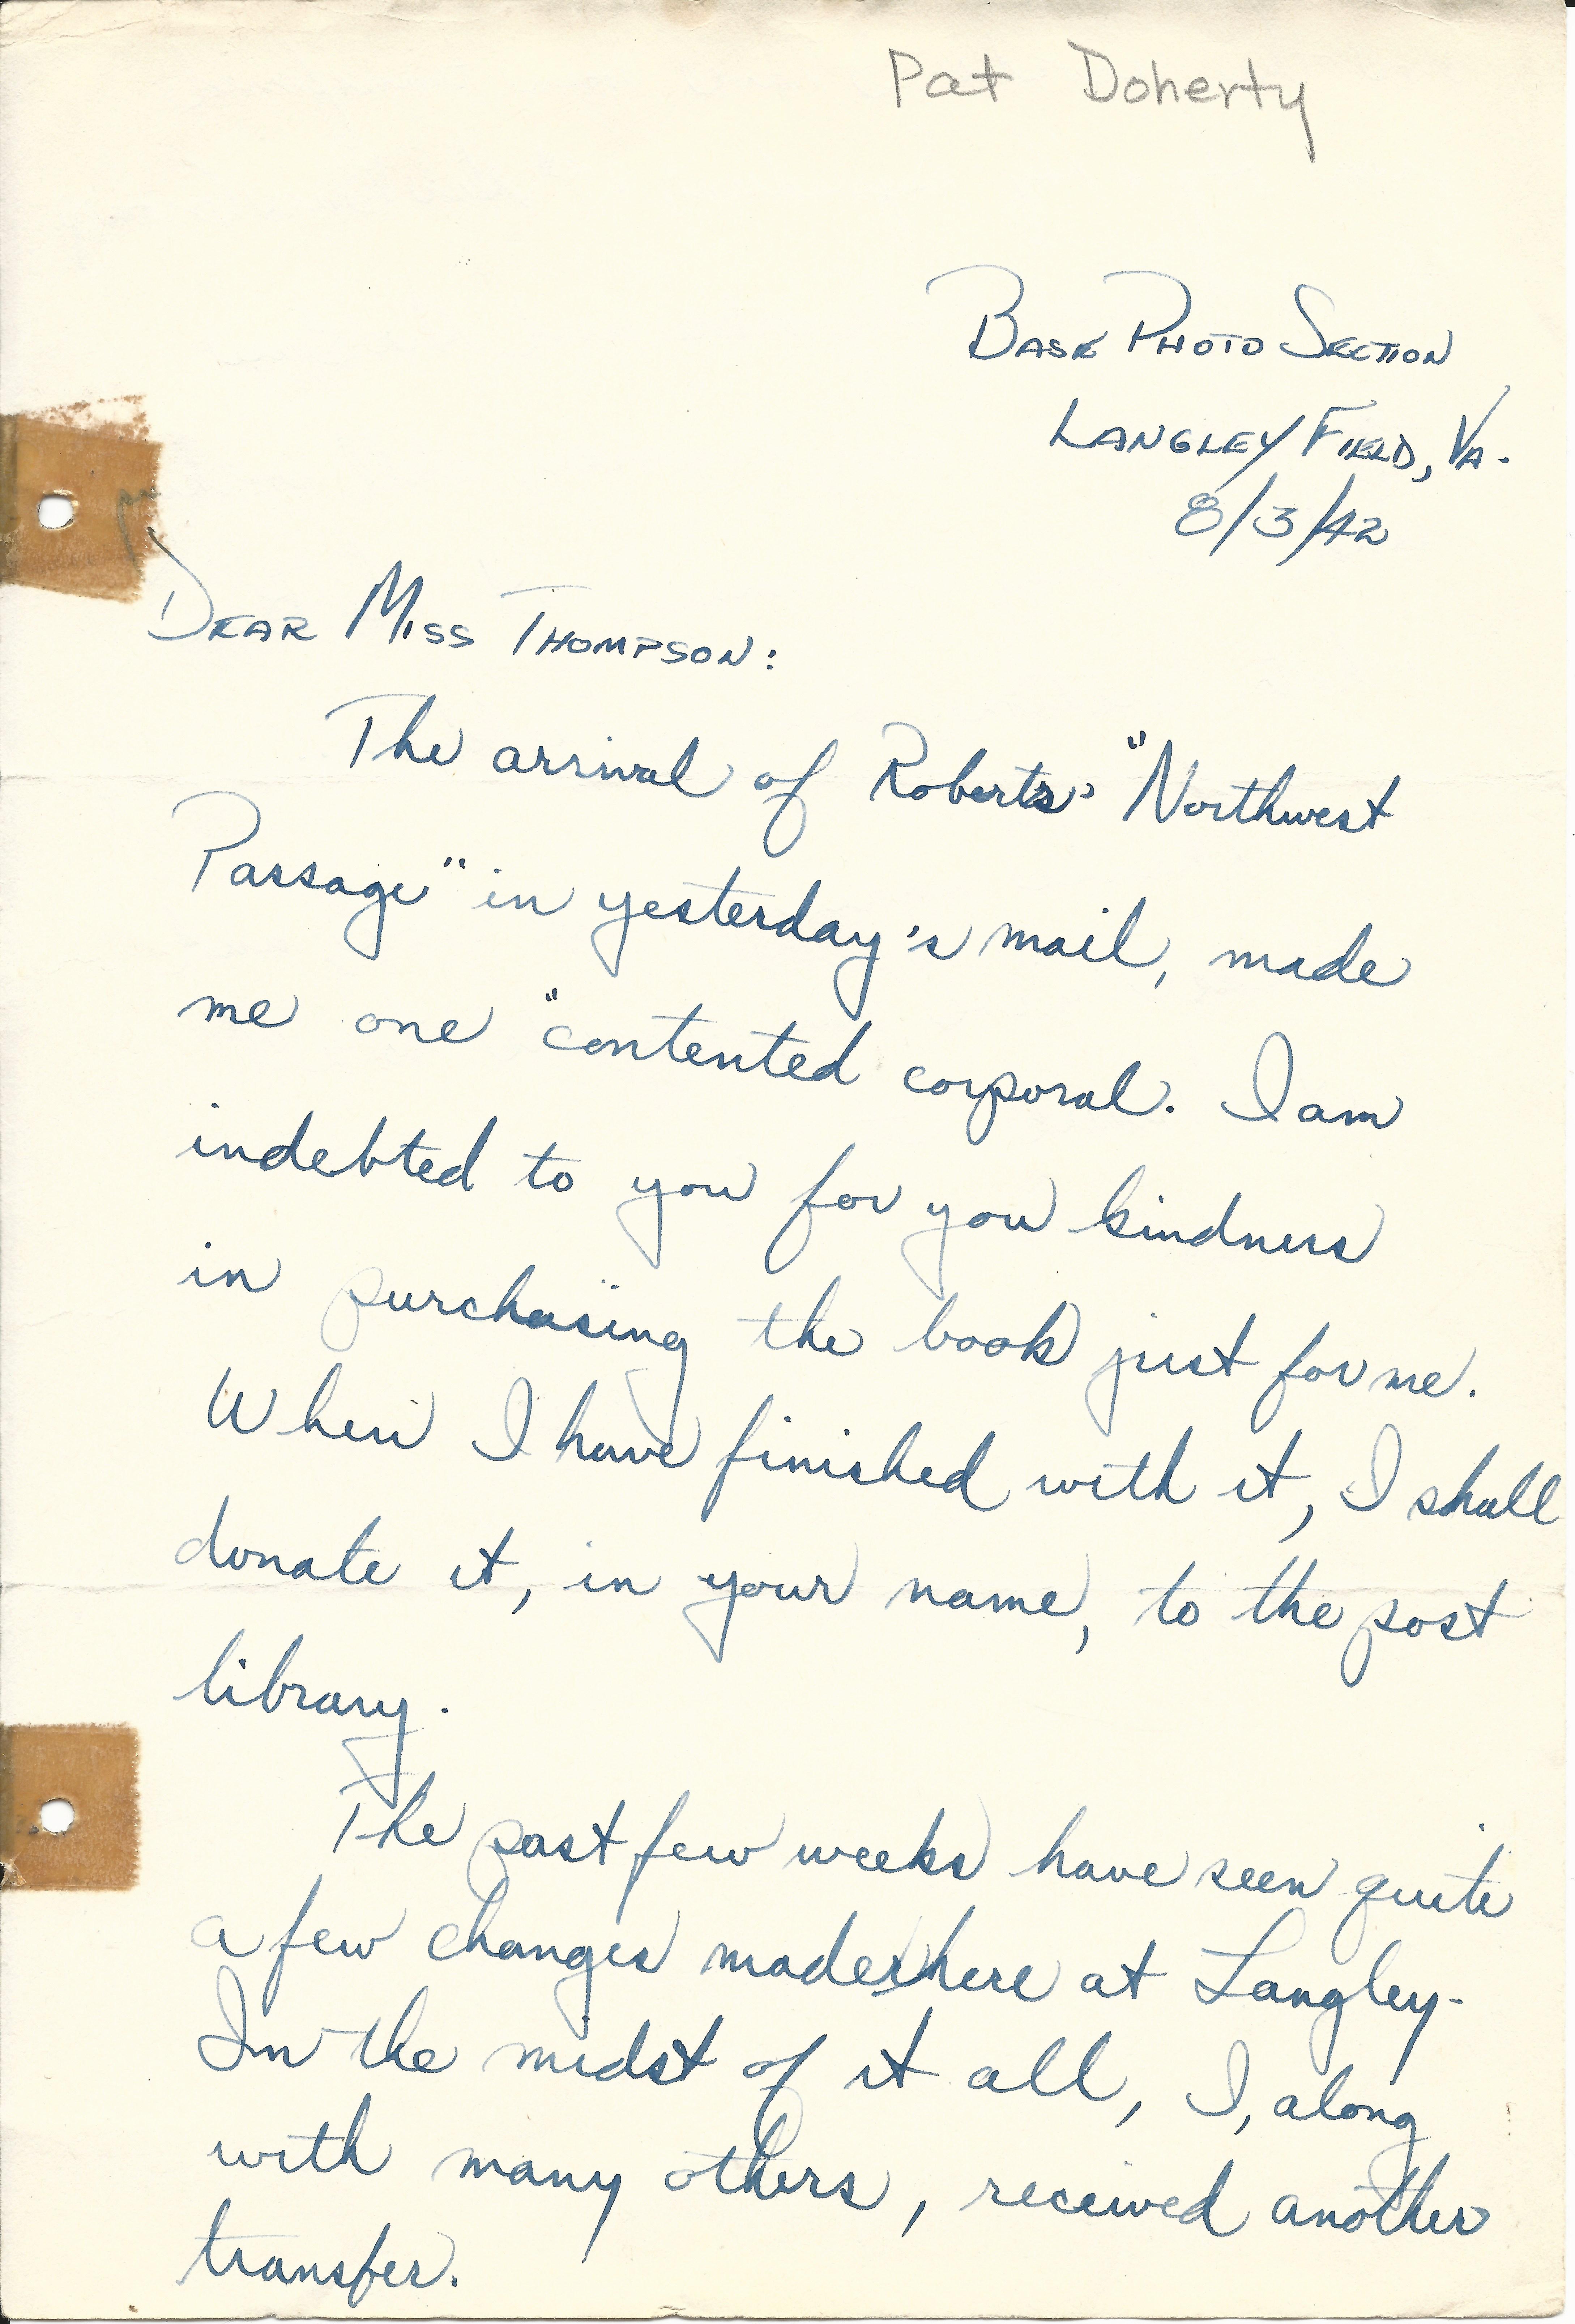 Pat Doherty
Base Photo Section
Langley Field, Va.
8/3/42
Dear Miss Thompson:
The arrival of Roberts' "Northwest
Passage" in yesterday's mail, made
me one "contented corporal. I am
indebted to you for you kindness
in purchasing the book just for me.
When I have finished with it, I shall
donate it, in your name, to the post
library.
The past few weeks have seen quite
a few changes made here at Langley.
In the midst of it all, I, along
with many others, received another
transfer.